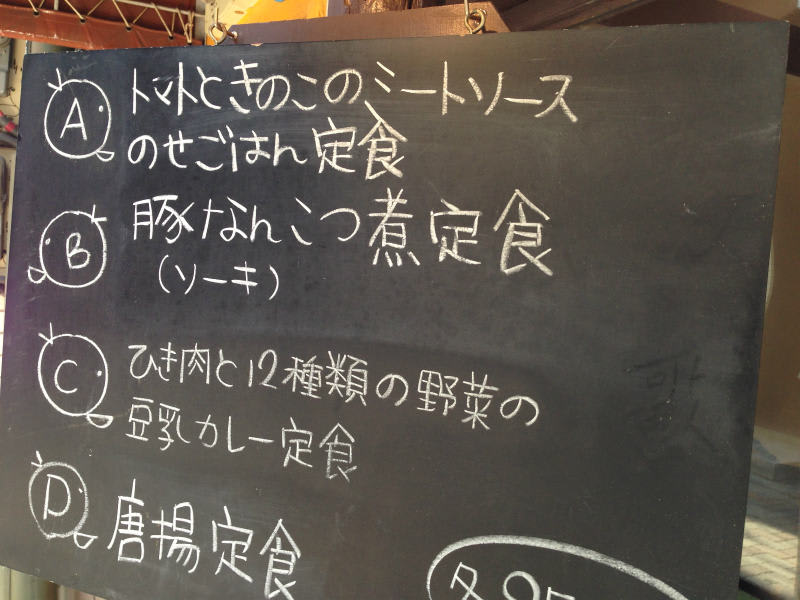 A トマトときのこのミートソース
のせごはん定食
B 豚なんこつ煮定食
(ソーキ)
C ひき肉と12種類の野菜の
豆乳カレー定食
D 唐揚定食
各